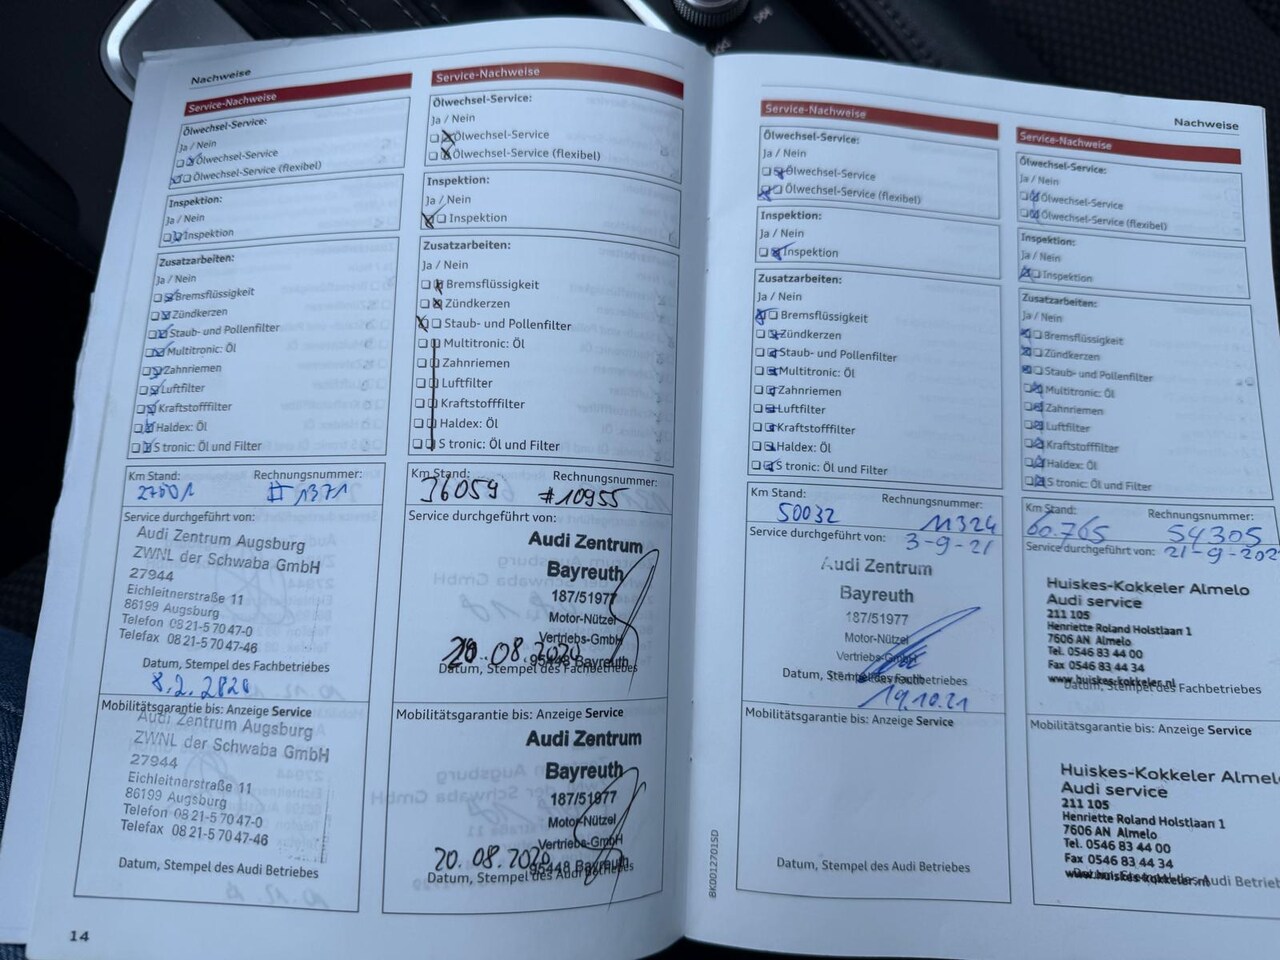 Nachweise
Service-Nachweise
Ölwechsel-Service:
Ja / Nein
Ölwechsel-Service
Ölwechsel-Service (flexibel)
Inspektion:
Ja / Nein
Inspektion
Zusatzarbeiten:
Ja / Nein
Bremsflüssigkeit
Zündkerzen
Staub- und Pollenfilter
Multitronic: Öl
Zahnriemen
Luftfilter
Kraftstofffilter
Haldex: Öl
S tronic: Öl und Filter
Km Stand: Rechnungsnummer:
#1371
Service durchgeführt von:
Audi Zentrum Augsburg
ZWNL der Schwaba GmbH
27944
Eichleitnerstraße 11
86199 Augsburg
Telefon 0821-57047-0
Telefax 0821-57047-46
Datum, Stempel des Fachbetriebes
Mobilitätsgarantie bis: Anzeige Service
Audi Zentrum Augsburg
ZWNL der Schwaba GmbH
27944
Eichleitnerstraße 11
86199 Augsburg
Telefon 0821-57047-0
Telefax 0821-57047-46
Datum, Stempel des Audi Betriebes
14
Service-Nachweise
Ölwechsel-Service:
Ja / Nein
Ölwechsel-Service
Ölwechsel-Service (flexibel)
Inspektion:
Ja / Nein
Inspektion
Zusatzarbeiten:
Ja / Nein
Bremsflüssigkeit
Zündkerzen
Staub- und Pollenfilter
Multitronic: Öl
Zahnriemen
Luftfilter
Kraftstofffilter
Haldex: Öl
S tronic: Öl und Filter
Km Stand: Rechnungsnummer:
36059 #10955
Service durchgeführt von:
Audi Zentrum
Bayreuth
187/51977
Motor-Nützel
Vertriebs-GmbH
95448 Bayreuth
20.08.2020
Datum, Stempel des Fachbetriebes
Mobilitätsgarantie bis: Anzeige Service
Audi Zentrum
Bayreuth
187/51977
Motor-Nützel
Vertriebs-GmbH
95448 Bayreuth
20.08.2020
Datum, Stempel des Audi Betriebes
Service-Nachweise
Ölwechsel-Service:
Ja / Nein
Ölwechsel-Service
Ölwechsel-Service (flexibel)
Inspektion:
Ja / Nein
Inspektion
Zusatzarbeiten:
Ja / Nein
Bremsflüssigkeit
Zündkerzen
Staub- und Pollenfilter
Multitronic: Öl
Zahnriemen
Luftfilter
Kraftstofffilter
Haldex: Öl
S tronic: Öl und Filter
Km Stand: Rechnungsnummer:
50032 11324
Service durchgeführt von: 3-9-21
Audi Zentrum
Bayreuth
187/51977
Motor-Nützel
Vertriebs-GmbH
Datum, Stempel des Fachbetriebes
19.10.21
Mobilitätsgarantie bis: Anzeige Service
Datum, Stempel des Audi Betriebes
BK0012701SD
Nachweise
Service-Nachweise
Ölwechsel-Service:
Ja / Nein
Ölwechsel-Service
Ölwechsel-Service (flexibel)
Inspektion:
Ja / Nein
Inspektion
Zusatzarbeiten:
Ja / Nein
Bremsflüssigkeit
Zündkerzen
Staub- und Pollenfilter
Multitronic: Öl
Zahnriemen
Luftfilter
Kraftstofffilter
Haldex: Öl
S tronic: Öl und Filter
Km Stand: Rechnungsnummer:
60.765 54305
Service durchgeführt von: 21-9-202
Huiskes-Kokkeler Almelo
Audi service
211 105
Henriette Roland Holstlaan 1
7606 AN Almelo
Tel. 0546 83 44 00
Fax 0546 83 44 34
www.huiskes-kokkeler.nl
Datum, Stempel des Fachbetriebes
Mobilitätsgarantie bis: Anzeige Service
Huiskes-Kokkeler Almel
Audi service
211 105
Henriette Roland Holstlaan 1
7606 AN Almelo
Tel. 0546 83 44 00
Fax 0546 83 44 34
www.huiskes-kokkeler.nl
Datum, Stempel des Audi Betrieb